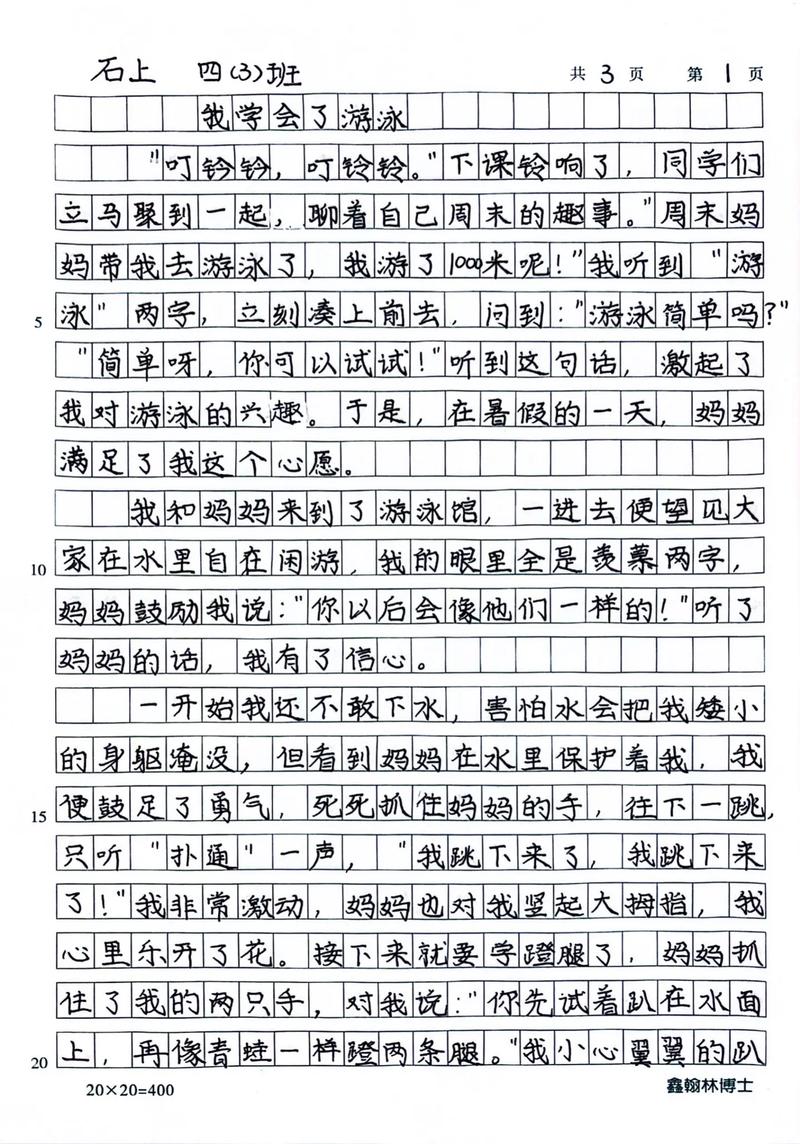 石上 四(3)班 共3页 第1页
我学会了游泳
"叮铃铃，叮铃铃。"下课铃响了，同学们
立马聚到一起，聊着自己周末的趣事。"周末妈
妈带我去游泳了，我游了1000米呢！"我听到"游
5 泳"两字，立刻凑上前去，问到："游泳简单吗？"
"简单呀，你可以试试！"听到这句话，激起了
我对游泳的兴趣。于是，在暑假的一天，妈妈
满足了我这个心愿。
我和妈妈来到了游泳馆，一进去便望见大
10 家在水里自在闲游，我的眼里全是羡慕两字，
妈妈鼓励我说："你以后会像他们一样的！"听了
妈妈的话，我有了信心。
一开始我还不敢下水，害怕水会把我矮小
的身躯淹没，但看到妈妈在水里保护着我，我
15 便鼓足了勇气，死死抓住妈妈的手，往下一跳，
只听"扑通"一声，"我跳下来了，我跳下来
了！"我非常激动，妈妈也对我竖起大拇指，我
心里乐开了花。接下来就要学蹬腿了，妈妈抓
住了我的两只手，对我说："你先试着趴在水面
20 上，再像青蛙一样蹬两条腿。"我小心翼翼的趴
20×20=400 鑫翰林博士